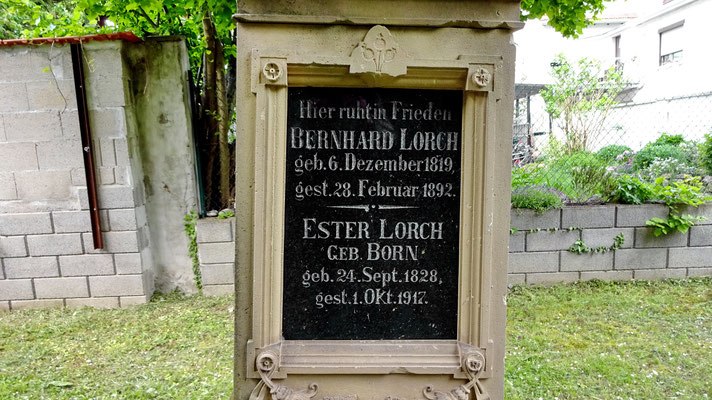 Hier ruht in Frieden
BERNHARD LORCH
geb. 6. Dezember 1819,
gest. 28. Februar 1892.
ESTER LORCH
GEB. BORN
geb. 24. Sept. 1828,
gest. 1. Okt. 1917.